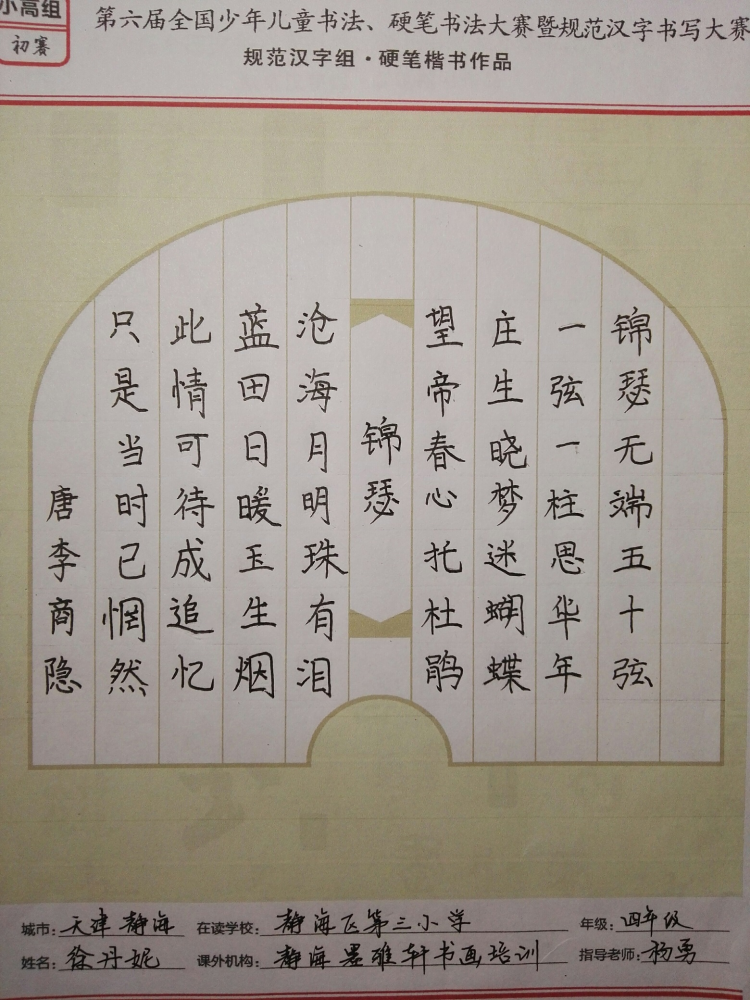 小高组
初赛
第六届全国少年儿童书法、硬笔书法大赛暨规范汉字书写大赛
规范汉字组·硬笔楷书作品
锦瑟无端五十弦
一弦一柱思华年
庄生晓梦迷蝴蝶
望帝春心托杜鹃
锦瑟
沧海月明珠有泪
蓝田日暖玉生烟
此情可待成追忆
只是当时已惘然
唐李商隐
城市：天津静海 在读学校：静海区第三小学 年级：四年级
姓名：徐丹妮 课外机构：静海墨雅轩书画培训 指导老师：杨勇